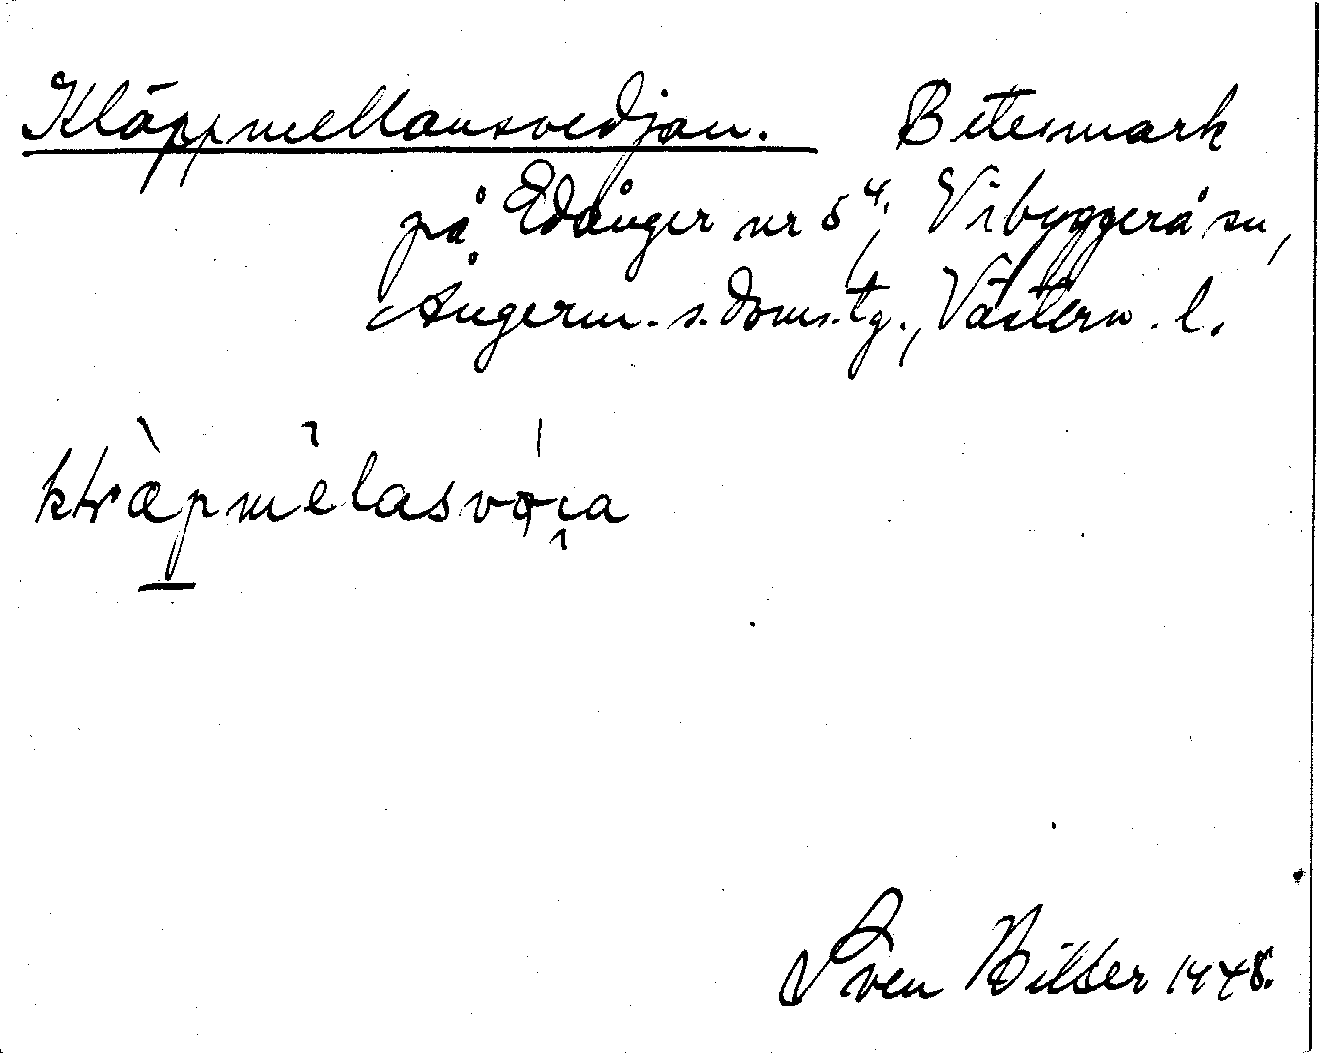 Kläppmellansvedjan. Betesmark
på Edånger nr 5⁴, Vibyggerå sn,
Ångerm. s. doms.tg., Västern. l.
Sven Bilter 1948.